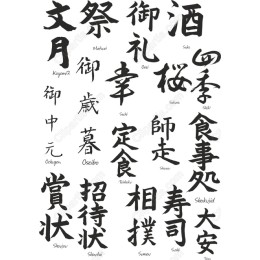 文月
Kagetsu
祭
Matsuri
御礼
Orei
酒
Saké
御歳暮
Oseibo
幸
Sachi
桜
Sakura
四季
Shiki
御中元
Ochūgen
定食
Teishoku
師走
Shiwasu
食事処
Shokujidokoro
賞状
Shōjō
招待状
相撲
Sumou
寿司
Sushi
大安
Taian